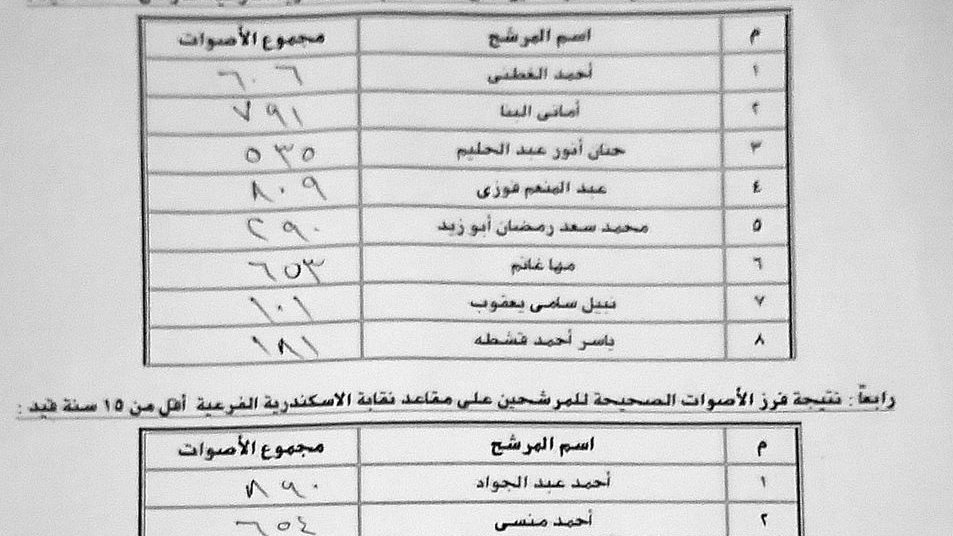 م اسم المرشح مجموع الأصوات
١ أحمد القطنى ٦٠٦
٢ أمانى البنا ٧٩١
٣ حنان أنور عبد الحليم ٥٣٥
٤ عبد المنعم فوزى ٨٠٩
٥ محمد سعد رمضان أبو زيد ٢٩٠
٦ مها غانم ٦٥٣
٧ نبيل سامى يعقوب ١٠١
٨ ياسر أحمد قشطه ١٨١
رابعاً : نتيجة فرز الأصوات الصحيحة للمرشحين على مقاعد نقابة الاسكندرية الفرعية أقل من ١٥ سنة قيد :
م اسم المرشح مجموع الأصوات
١ أحمد عبد الجواد ٨٩٠
٢ أحمد منسى ٦٥٤